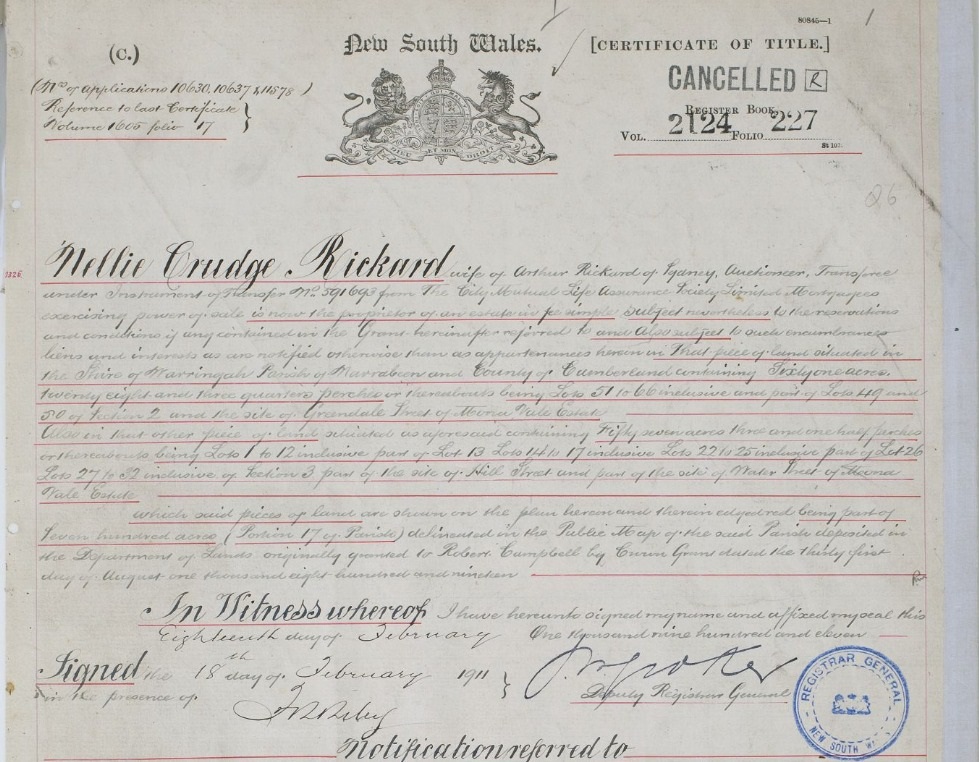 80845—1
1
(C.)
New South Wales.
[CERTIFICATE OF TITLE.]
CANCELLED R
(Nos of applications 10630, 10637 & 11578)
Reference to last Certificate
Volume 1605 folio 17
REGISTER BOOK
VOL. 2124 FOLIO 227
St 107.
26
Nellie Crudge Rickard wife of Arthur Rickard of Sydney, Auctioneer, Transferee
under Instrument of Transfer No. 591693 from The City Mutual Life Assurance Society Limited Mortgagees
exercising power of sale is now the proprietor of an estate in fee simple subject nevertheless to the reservations
and conditions if any contained in the Grant hereinafter referred to and Also subject to such encumbrances
liens and interests as are notified otherwise than as appurtenances hereon in That piece of land situated in
the Shire of Warringah Parish of Narrabeen and County of Cumberland containing Sixty one acres
twenty eight and three quarters perches or thereabouts being Lots 51 to 66 inclusive and part of Lots 49 and
50 of Section 2 and the site of Greendale Street of Mona Vale Estate
Also in that other piece of land situated as aforesaid containing Fifty seven acres three and one half perches
or thereabouts being Lots 1 to 12 inclusive part of Lot 13 Lots 14 to 17 inclusive Lots 22 to 25 inclusive part of Lot 26
Lots 27 to 32 inclusive of Section 3 part of the site of Hill Street and part of the site of Water Street of Mona
Vale Estate
which said pieces of land are shown on the plan hereon and therein edged red being part of
Seven hundred acres (Portion 17 of Parish) delineated in the Public Map of the said Parish deposited in
the Department of Lands originally granted to Robert Campbell by Crown Grant dated the thirty first
day of August one thousand eight hundred and nineteen
In Witness whereof I have hereunto signed my name and affixed my seal this
Eighteenth day of February One thousand nine hundred and eleven
Signed the 18th day of February 1911
in the presence of
Deputy Registrar General
REGISTRAR GENERAL
NEW SOUTH
Notification referred to